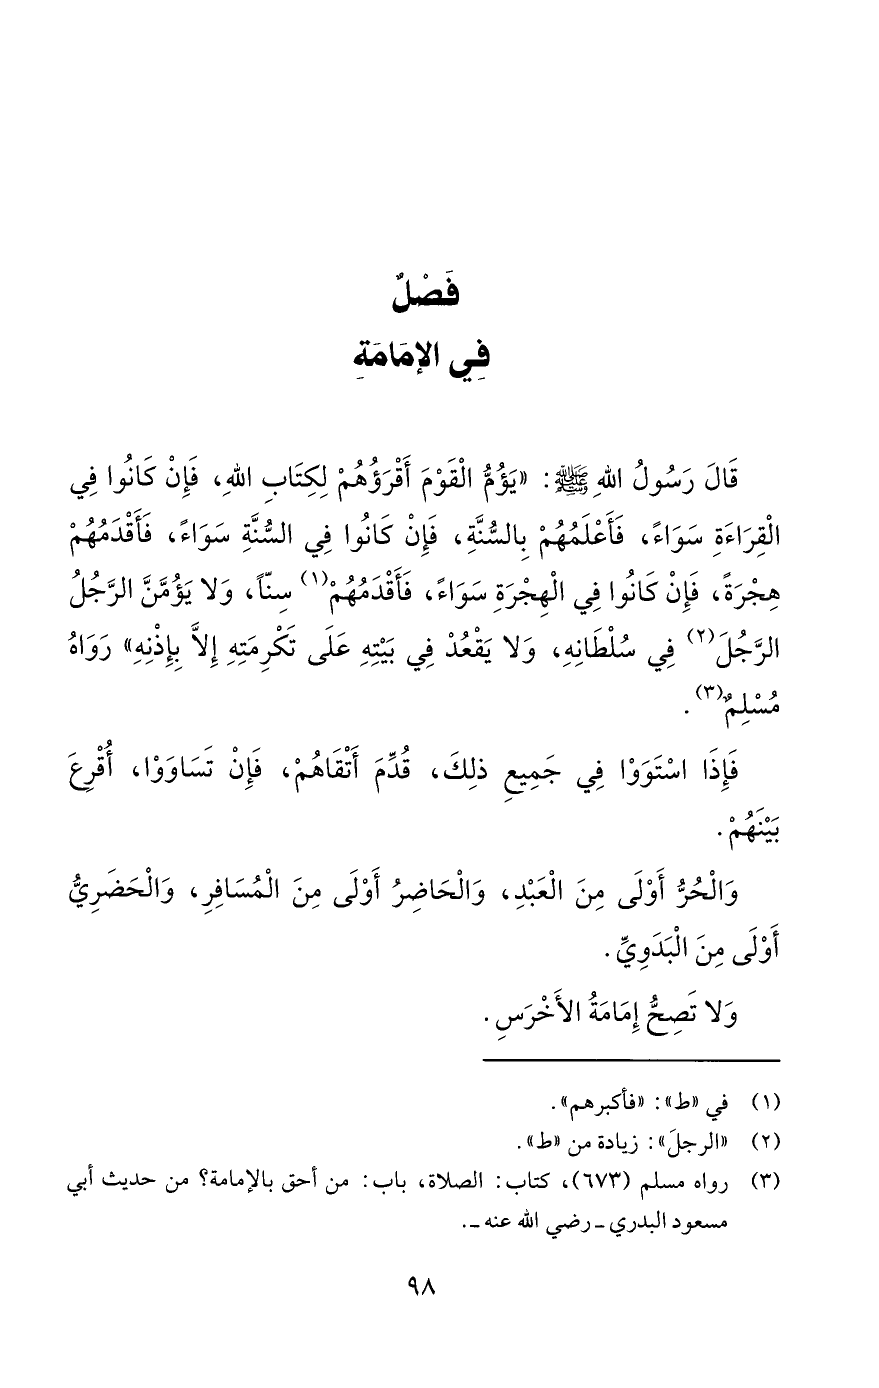 فَصْلٌ
فِي الإمَامَةِ
قَالَ رَسُولُ اللهِ ﷺ: «يَؤُمُّ الْقَوْمَ أَقْرَؤُهُمْ لِكِتَابِ اللهِ، فَإِنْ كَانُوا فِي
الْقِرَاءَةِ سَوَاءً، فَأَعْلَمُهُمْ بِالسُّنَّةِ، فَإِنْ كَانُوا فِي السُّنَّةِ سَوَاءً، فَأَقْدَمُهُمْ
هِجْرَةً، فَإِنْ كَانُوا فِي الْهِجْرَةِ سَوَاءً، فَأَقْدَمُهُمْ(١) سِنّاً، وَلا يَؤُمَّنَّ الرَّجُلُ
الرَّجُلَ(٢) فِي سُلْطَانِهِ، وَلا يَقْعُدْ فِي بَيْتِهِ عَلَى تَكْرِمَتِهِ إِلاَّ بِإِذْنِهِ» رَوَاهُ
مُسْلِمٌ(٣).
فَإِذَا اسْتَوَوْا فِي جَمِيعِ ذلِكَ، قُدِّمَ أَتْقَاهُمْ، فَإِنْ تَسَاوَوْا، أُقْرِعَ
بَيْنَهُمْ.
وَالْحُرُّ أَوْلَى مِنَ الْعَبْدِ، وَالْحَاضِرُ أَوْلَى مِنَ الْمُسَافِرِ، وَالْحَضَرِيُّ
أَوْلَى مِنَ الْبَدَوِيِّ.
وَلا تَصِحُّ إِمَامَةُ الأَخْرَسِ.
(١) في «ط»: «فأكبرهم».
(٢) «الرجلَ»: زيادة من «ط».
(٣) رواه مسلم (٦٧٣)، كتاب: الصلاة، باب: من أحق بالإمامة؟ من حديث أبي
مسعود البدري ـ رضي الله عنه ـ.
٩٨